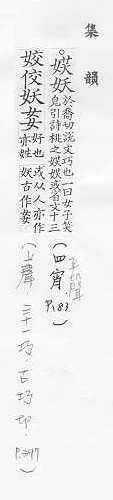 集韻
。𡝩妖於喬切說文巧也一曰女子笑皃引詩桃之𡝩𡝩或省文十三（四宵.P.183）
平聲
姣佼妖㚣好也亦姓或从人亦作妖古作㚣（上聲三十一巧.古巧切.P.397）